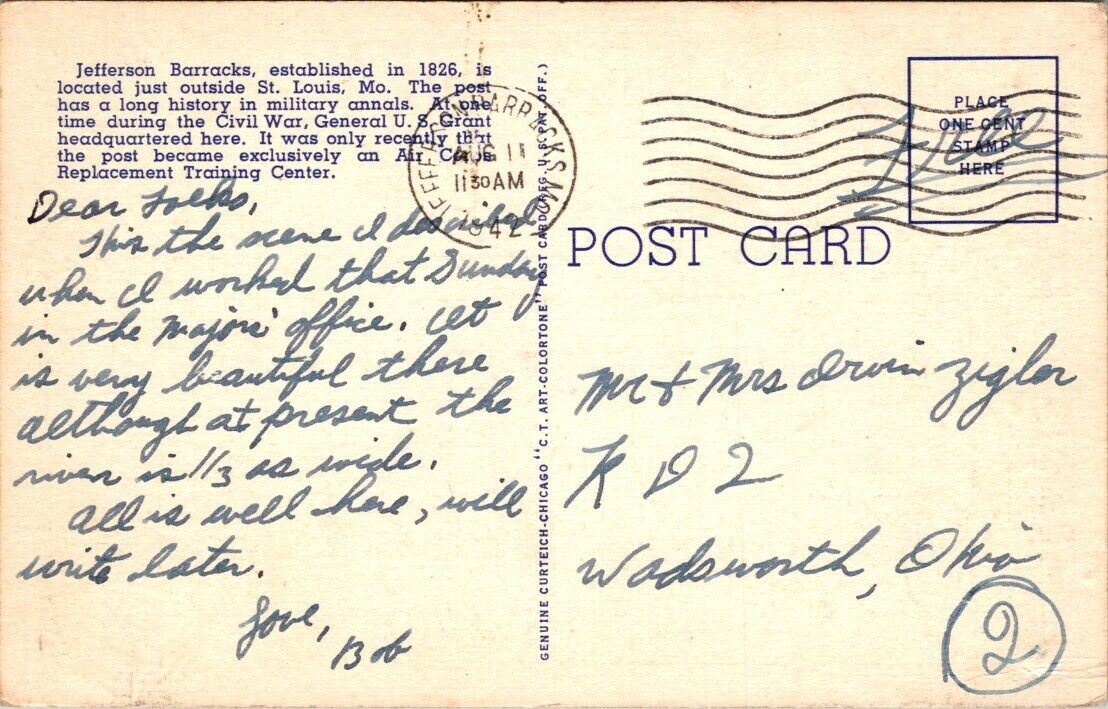 Jefferson Barracks, established in 1826, is
located just outside St. Louis, Mo. The post
has a long history in military annals. At one
time during the Civil War, General U. S. Grant
headquartered here. It was only recently that
the post became exclusively an Air Corps
Replacement Training Center.
Dear Folks,
This the scene I described
when I worked that Sunday
in the Majors' office. It
is very beautiful there
although at present the
river is 1/3 as wide.
All is well here, will
write later.
Love,
Bob
GENUINE CURTEICH-CHICAGO "C. T. ART-COLORTONE" POST CARD (REG. U. S. PAT. OFF.)
JEFFERSON BARRACKS MO.
AUG 11
11 30 AM
1942
PLACE
ONE CENT
STAMP
HERE
Free
POST CARD
Mr & Mrs Irvin Zigler
R D 2
Wadsworth, Ohio
2